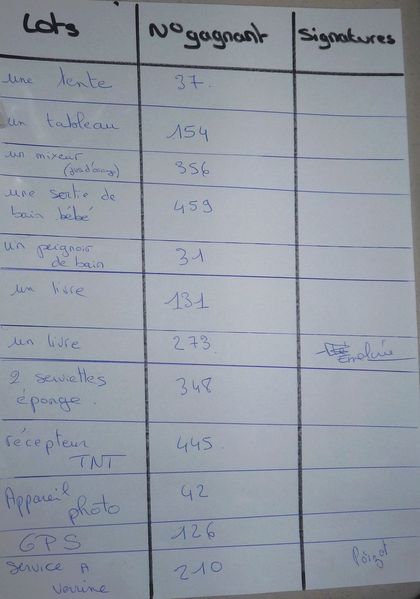 Lots N° gagnant Signatures
une tente 37.
un tableau 154
un mixeur 356
(jus d'orange)
une sortie de 459
bain bébé
un peignoir 31
de bain
un livre 131
un livre 273
2 serviettes 348
éponge.
récepteur 445
TNT
Appareil 42
photo
GPS 126
Service A 210
verrine